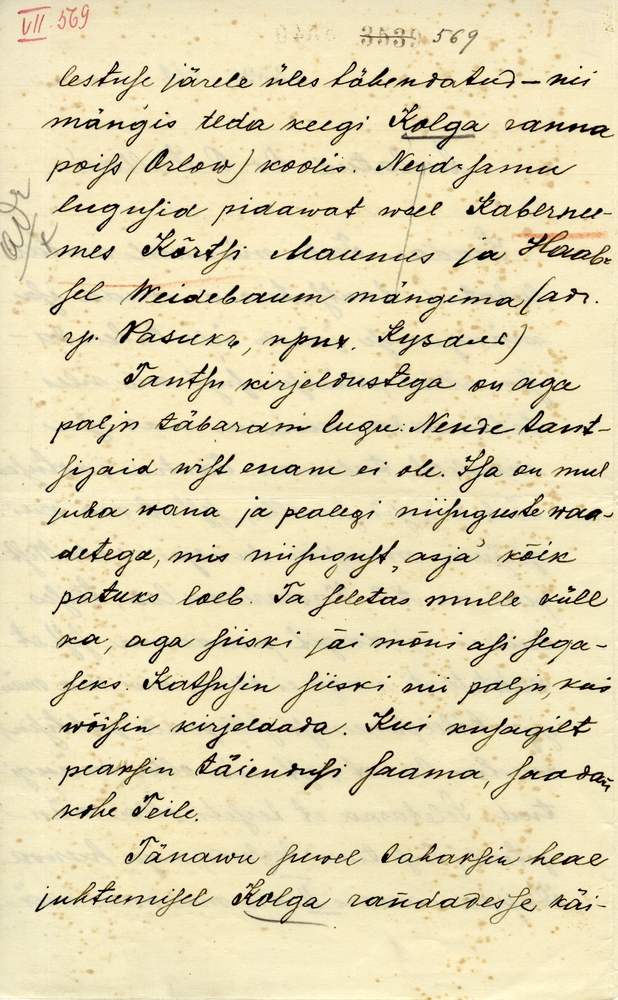 VII 569
3539 569
lestuse järele üles tähendatud – nii
mängis teda keegi Kolga ranna
poiss (Orlow) koolis. Neid samu
lugusid pidawat weel Kabernee-
mes Kõrtsi Maunus ja Haab-
sel Weidebaum mängima (adr.
Разикъ, прих. Кузалъ)
Tantsu kirjeldustega on aga
palju täbaram lugu: Nende tant-
sijaid wist enam ei ole. Isa on mul
juba wana ja pealegi niisuguste waa-
detega, mis niisugust „asja“ kõik
patuks loeb. Ta seletas mulle küll
ka, aga siiski jäi mõni asi sega-
seks. Katsusin siiski nii palju, kui
wõisin kirjeldada. Kui kusagilt
peaksin täiendusi saama, saadan
kohe Teile.
Tänawu suwel tahaksin heal
juhtumisel Kolga randadesse käi-